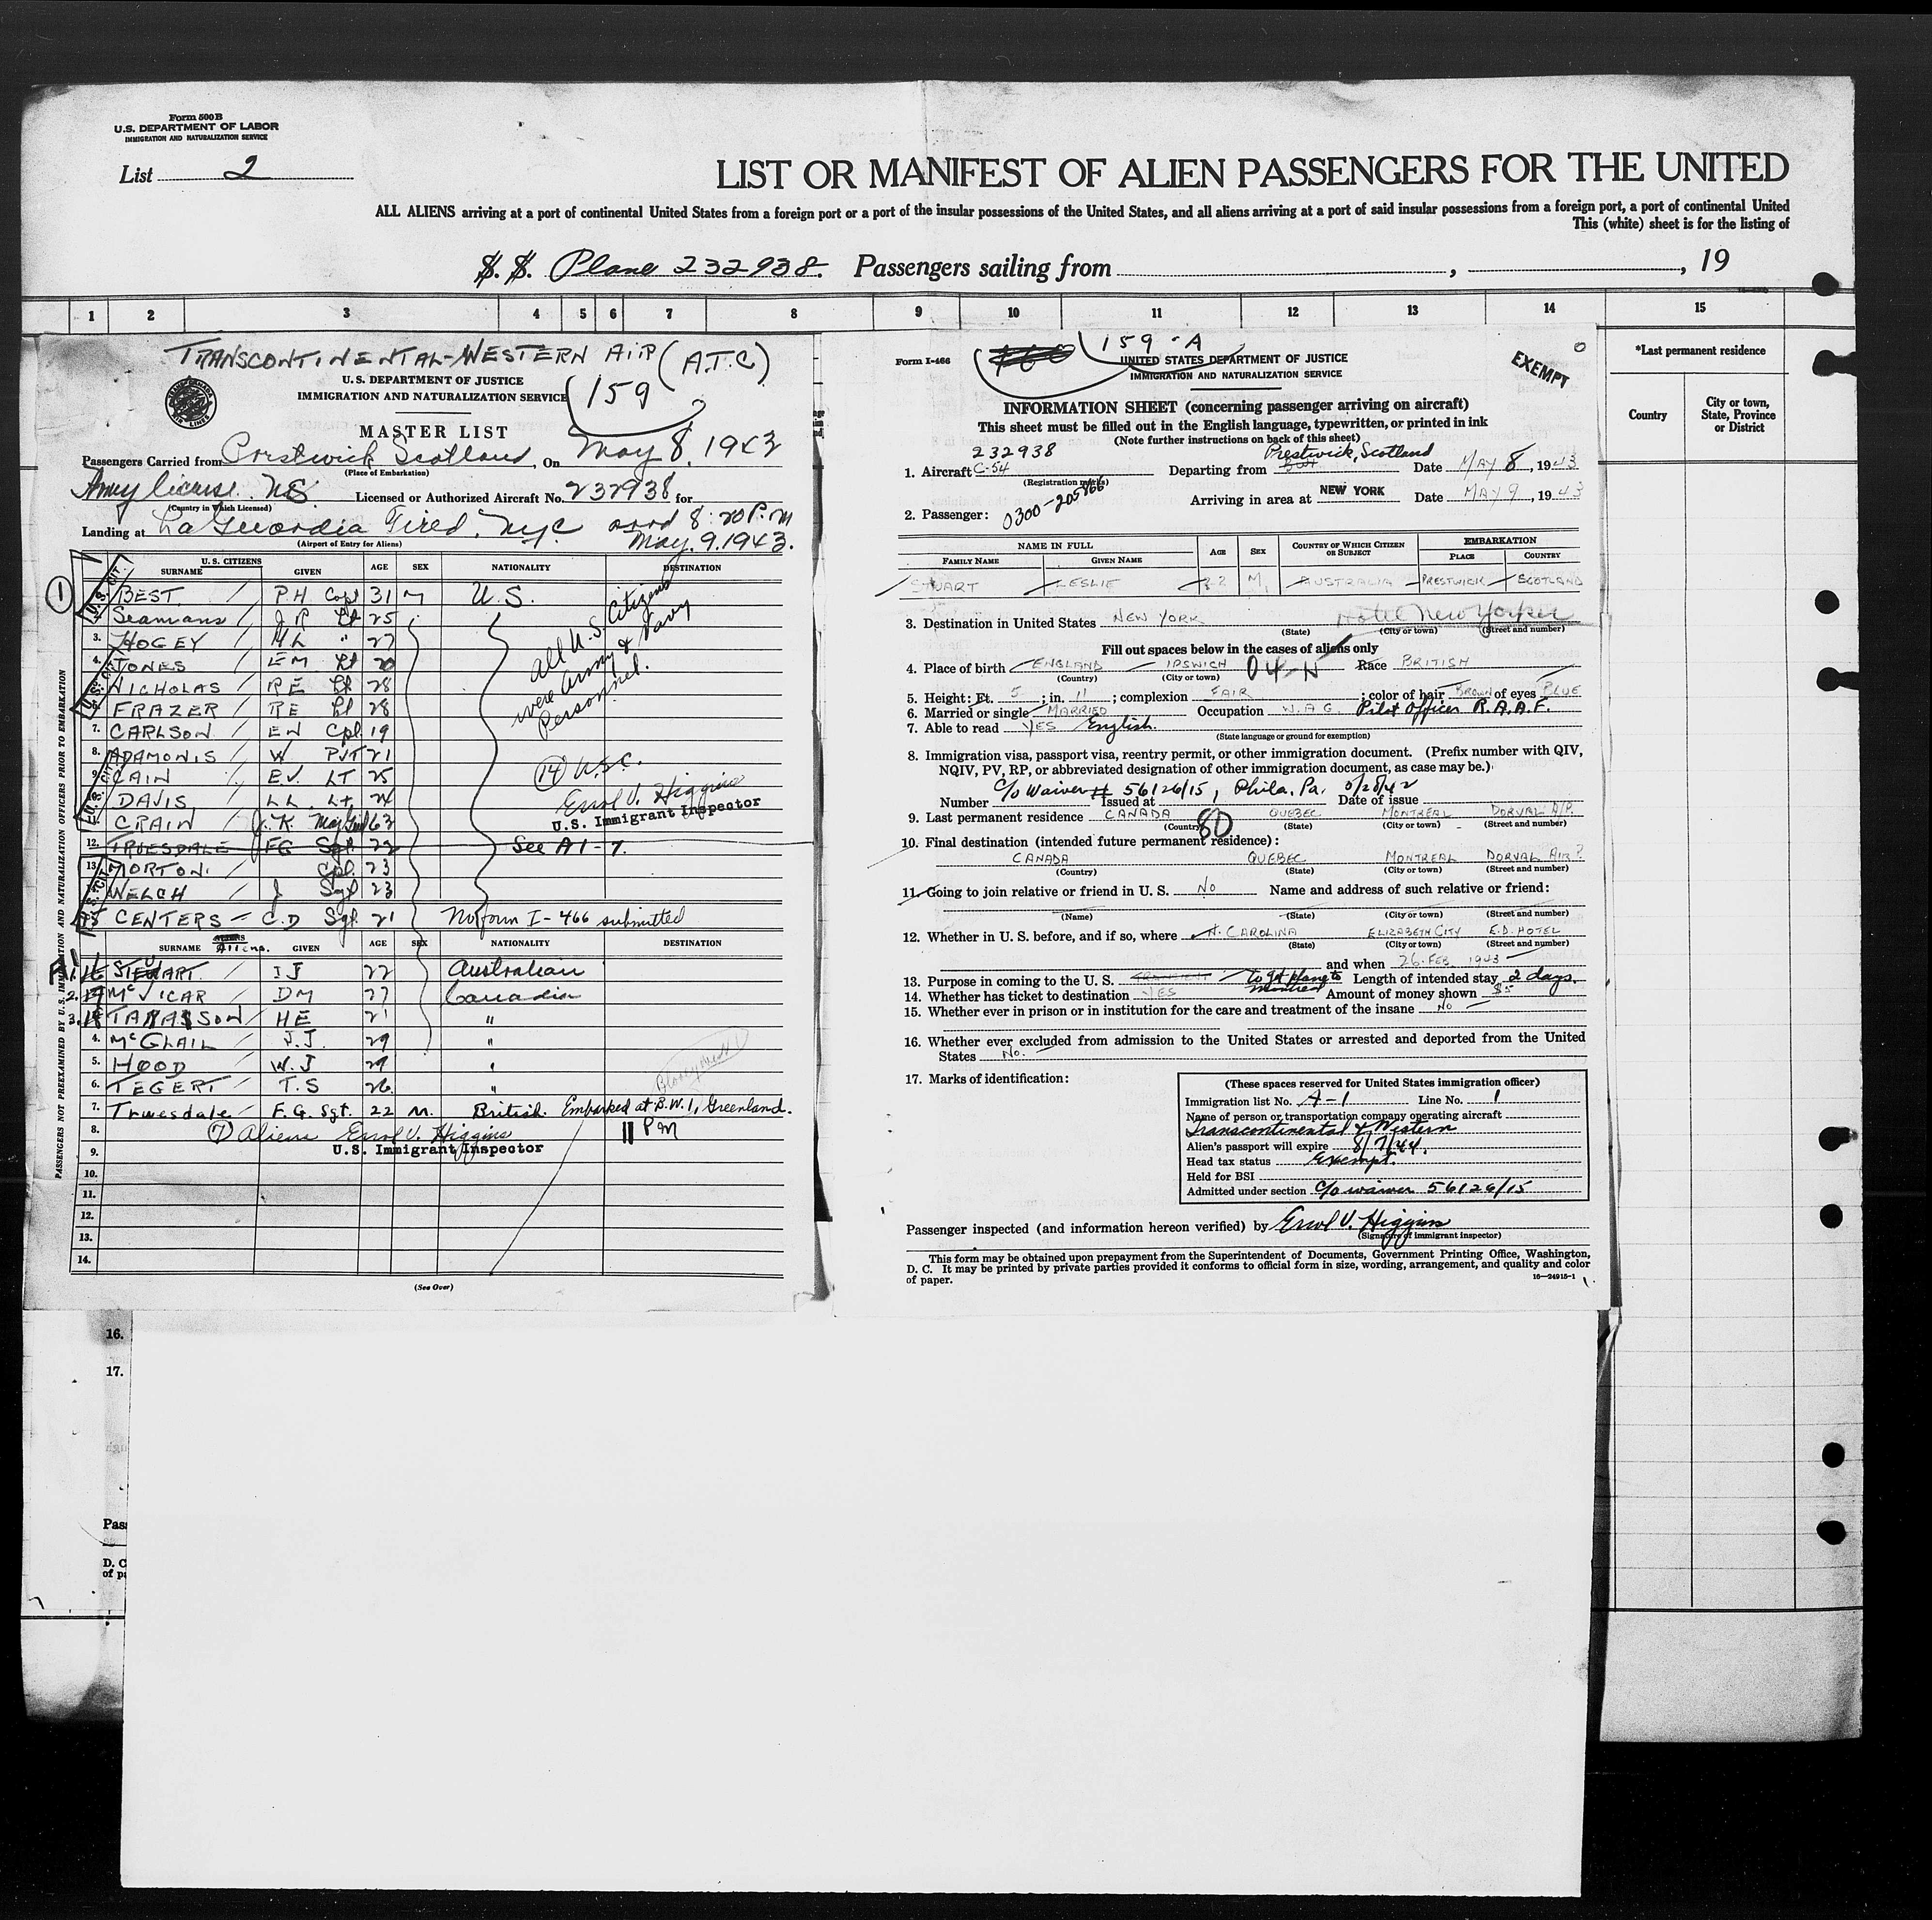 Form 500 B
U.S. DEPARTMENT OF LABOR
IMMIGRATION AND NATURALIZATION SERVICE
List 2
LIST OR MANIFEST OF ALIEN PASSENGERS FOR THE UNITED
ALL ALIENS arriving at a port of continental United States from a foreign port or a port of the insular possessions of the United States, and all aliens arriving at a port of said insular possessions from a foreign port, a port of continental United
This (white) sheet is for the listing of
S. S. Plane 232938. Passengers sailing from , , 19
1 2 3 4 5 6 7 8 9 10 11 12 13 14 15
*Last permanent residence
Country
City or town, State, Province or District
TRANSCONTINENTAL-WESTERN AIR (A.T.C)
U.S. DEPARTMENT OF JUSTICE
IMMIGRATION AND NATURALIZATION SERVICE
159
MASTER LIST
Passengers Carried from Prestwick Scotland, On May 8, 1943
(Place of Embarkation)
Army license. US Licensed or Authorized Aircraft No. 232938 for
(Country in Which Licensed)
Landing at La Guardia Field, NYC arrd 8:20 P.M
(Airport of Entry for Aliens) May. 9. 1943.
U.S. CITIZENS
SURNAME GIVEN AGE SEX NATIONALITY DESTINATION
1 BEST P.H Capt 31 M U.S.
Seamans J R Lt 25
3. HOGEY H L " 27
4. JONES E M Lt 20
NICHOLAS R E Lt 28
FRAZER R E Lt 28
7. CARLSON E W Cpl 19
8. ADAMONIS W PVT 21
9. CAIN E.V. LT 25
10. DAVIS L L. Lt 24
CRAIN J. K. Maj Genl 63
12. TRUESDALE F G Sgt 22 See A 1 - 7.
13. MORTON. Cpl. 23
WELCH J Sgt 23
15 CENTERS - C. D Sgt 21 No form I-466 submitted
All U.S. Citizens
were Army & Navy
Personnel.
14 U.S.C.
Errol V. Higgins
U.S. Immigrant Inspector
Aliens.
SURNAME GIVEN AGE SEX NATIONALITY DESTINATION
A1 1. 16 STUART. I J 22 Australian
2. 17 McVICAR D M 27 Canadian
3. 18 TARASSON H E 21 "
4. McGLAIL J. J. 29 "
5. HOOD W. J 29 "
6. TEGERT T. S 26 "
7. Truesdale F. G. Sgt. 22 M. British. Embarked at B.W.1, Greenland.
8. 7 Aliens Errol V. Higgins 11 PM
9. U.S. Immigrant Inspector
10.
11.
12.
13.
14.
(See Over)
PASSENGERS NOT PREEXAMINED BY U.S. IMMIGRATION AND NATURALIZATION OFFICERS PRIOR TO EMBARKATION
Form I-466
159 - A
UNITED STATES DEPARTMENT OF JUSTICE
IMMIGRATION AND NATURALIZATION SERVICE
EXEMPT
INFORMATION SHEET (concerning passenger arriving on aircraft)
This sheet must be filled out in the English language, typewritten, or printed in ink
(Note further instructions on back of this sheet)
232938
1. Aircraft C-54 Departing from Prestwick, Scotland Date MAY 8, 1943
(Registration marks)
Arriving in area at NEW YORK Date MAY 9, 1943
2. Passenger: 0300-205866
NAME IN FULL
FAMILY NAME GIVEN NAME AGE SEX COUNTRY OF WHICH CITIZEN OR SUBJECT EMBARKATION PLACE COUNTRY
STUART LESLIE 22 M. AUSTRALIA PRESTWICK SCOTLAND
3. Destination in United States NEW YORK Hotel New Yorker
(State) (City or town) (Street and number)
Fill out spaces below in the cases of aliens only
4. Place of birth ENGLAND IPSWICH 04-N Race BRITISH
(Country) (City or town)
5. Height: Ft. 5; in. 11; complexion FAIR; color of hair BROWN of eyes BLUE
6. Married or single MARRIED Occupation W.A.G. Pilot Officer R.A.A.F.
7. Able to read YES English.
(State language or ground for exemption)
8. Immigration visa, passport visa, reentry permit, or other immigration document. (Prefix number with QIV,
NQIV, PV, RP, or abbreviated designation of other immigration document, as case may be.)
Number C/o Waiver # 56126/15, Issued at Phila, Pa. Date of issue /28/42
9. Last permanent residence CANADA QUEBEC MONTREAL DORVAL A/P.
(Country) 80 (State) (City or town) (Street and number)
10. Final destination (intended future permanent residence):
CANADA QUEBEC MONTREAL DORVAL AIR P
(Country) (State) (City or town) (Street and number)
11. Going to join relative or friend in U. S. No Name and address of such relative or friend:
(Name) (State) (City or town) (Street and number)
12. Whether in U. S. before, and if so, where N. CAROLINA ELIZABETH CITY E.D. HOTEL
(State) (City or town) (Street and number)
and when 26 FEB. 1943
13. Purpose in coming to the U. S. to get plane to Montreal Length of intended stay 2 days.
14. Whether has ticket to destination YES Amount of money shown $5
15. Whether ever in prison or in institution for the care and treatment of the insane No
16. Whether ever excluded from admission to the United States or arrested and deported from the United
States No.
17. Marks of identification:
(These spaces reserved for United States immigration officer)
Immigration list No. A-1 Line No. 1
Name of person or transportation company operating aircraft
Transcontinental & Western
Alien's passport will expire 8/7/44.
Head tax status Exempt.
Held for BSI
Admitted under section C/o waiver 56126/15
Passenger inspected (and information hereon verified) by Errol V. Higgins
(Signature of immigrant inspector)
This form may be obtained upon prepayment from the Superintendent of Documents, Government Printing Office, Washington,
D. C. It may be printed by private parties provided it conforms to official form in size, wording, arrangement, and quality and color
of paper. 16—24915-1
16.
17.
Pas
D. C
of pa